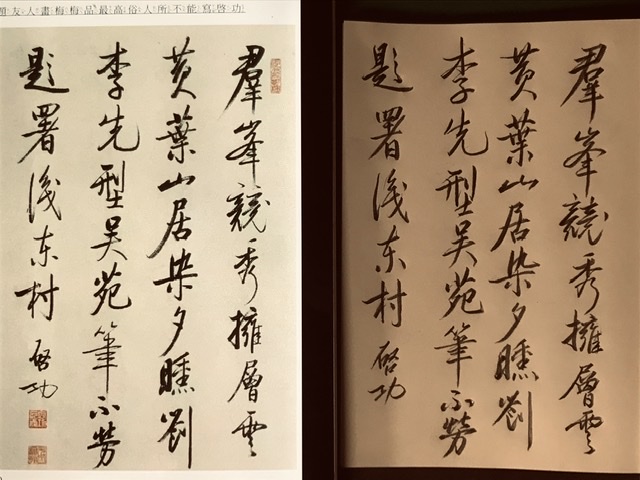 題友人畫梅梅品最高俗人所不能寫啓功
羣峯競秀擁層雲
黄葉山居染夕曛劉
李先型吴苑筆不勞
題署識东村 啓功
羣峯競秀擁層雲
黄葉山居染夕曛劉
李先型吴苑筆不勞
題署識东村 啓功